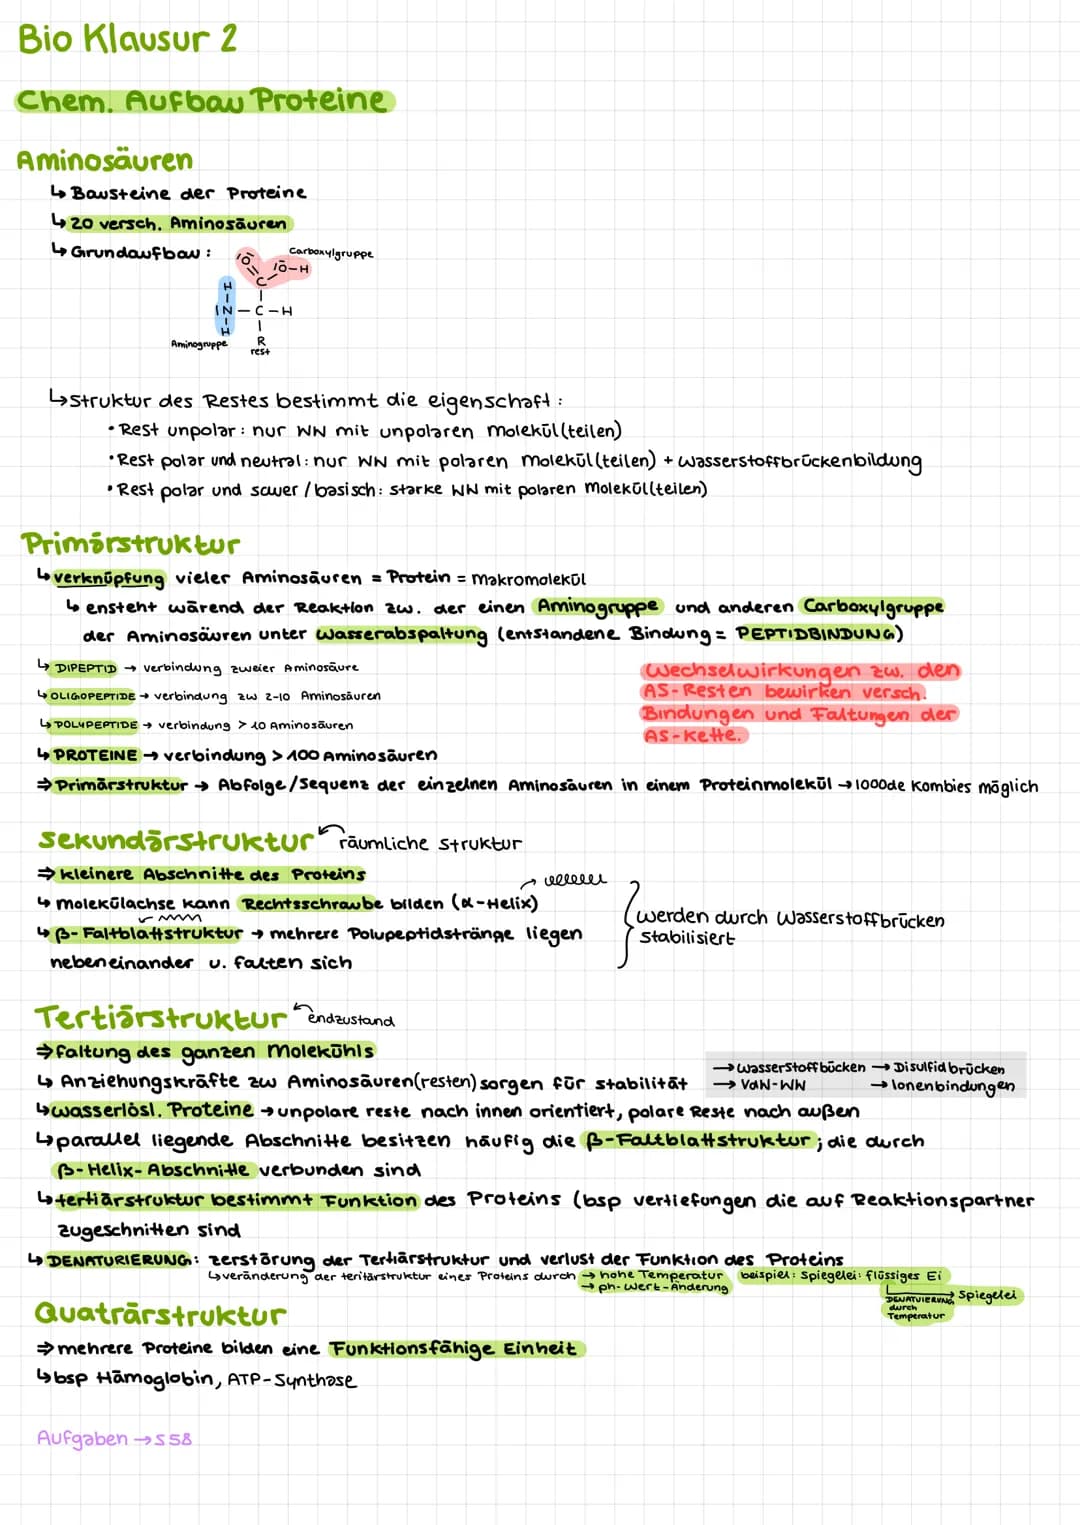 Bio Klausur 2
Chem. Aufbau Proteine
Aminosäuren
↳ Bausteine der Proteine
↳ 20 versch. Aminosäuren
↳ Grundaufbau:
Carboxylgruppe
O
O-H
C
H
N-C-H
H
R
Aminogruppe
rest
↳ Struktur des Restes bestimmt die eigenschaft:
• Rest unpolar: nur WN mit unpolaren Molekül(teilen)
• Rest polar und neutral: nur WN mit polaren Molekül(teilen) + Wasserstoffbrückenbildung
• Rest polar und sauer/basisch: starke WN mit polaren Molekül(teilen)
Primärstruktur
↳ verknüpfung vieler Aminosäuren = Protein = Makromolekül
↳ ensteht wärend der Reaktion zw. der einen Aminogruppe und anderen Carboxylgruppe
der Aminosäuren unter Wasserabspaltung (entstandene Bindung = PEPTIDBINDUNG)
↳ DIPEPTID → verbindung zweier Aminosäure
↳ OLIGOPEPTIDE → verbindung zw 2-10 Aminosäuren
↳ POLYPEPTIDE → verbindung > 10 Aminosäuren
↳ PROTEINE → verbindung > 100 Aminosäuren
Wechselwirkungen zw. den
AS-Resten bewirken versch.
Bindungen und Faltungen der
AS-Kette.
⇒ Primärstruktur → Abfolge/Sequenz der einzelnen Aminosäuren in einem Proteinmolekül → 1000de Kombies möglich
Sekundärstruktur räumliche Struktur
⇒ kleinere Abschnitte des Proteins
↳ molekülachse kann Rechtsschraube bilden (α-Helix)
↳ β-Faltblattstruktur → mehrere Polupeptidstränge liegen
nebeneinander u. falten sich
werden durch Wasserstoffbrücken
stabilisiert
Tertiärstruktur endzustand
⇒ faltung des ganzen Molekühls
↳ Anziehungskräfte zw Aminosäuren(resten) sorgen für stabilität
→ Wasserstoffbücken → Disulfidbrücken
→ VdN-WN → Ionenbindungen
↳ wasserlösl. Proteine → unpolare reste nach innen orientiert, polare Reste nach außen
↳ parallel liegende Abschnitte besitzen häufig die β-Faltblattstruktur; die durch
β-Helix-Abschnitte verbunden sind
↳ tertiärstruktur bestimmt Funktion des Proteins (bsp vertiefungen die auf Reaktionspartner
zugeschnitten sind
↳ DENATURIERUNG: zerstörung der Tertiärstruktur und verlust der Funktion des Proteins
↳ veränderung der teritärstruktur eines Proteins durch → hohe Temperatur
→ ph-Wert-Änderung
beispiel: Spiegelei: flüssiges Ei
→ Spiegelei
DENATUIERUNG
durch
Temperatur
Quaträrstruktur
⇒ mehrere Proteine bilden eine Funktionsfähige Einheit
↳ bsp Hämoglobin, ATP-Synthase
Aufgaben → S58